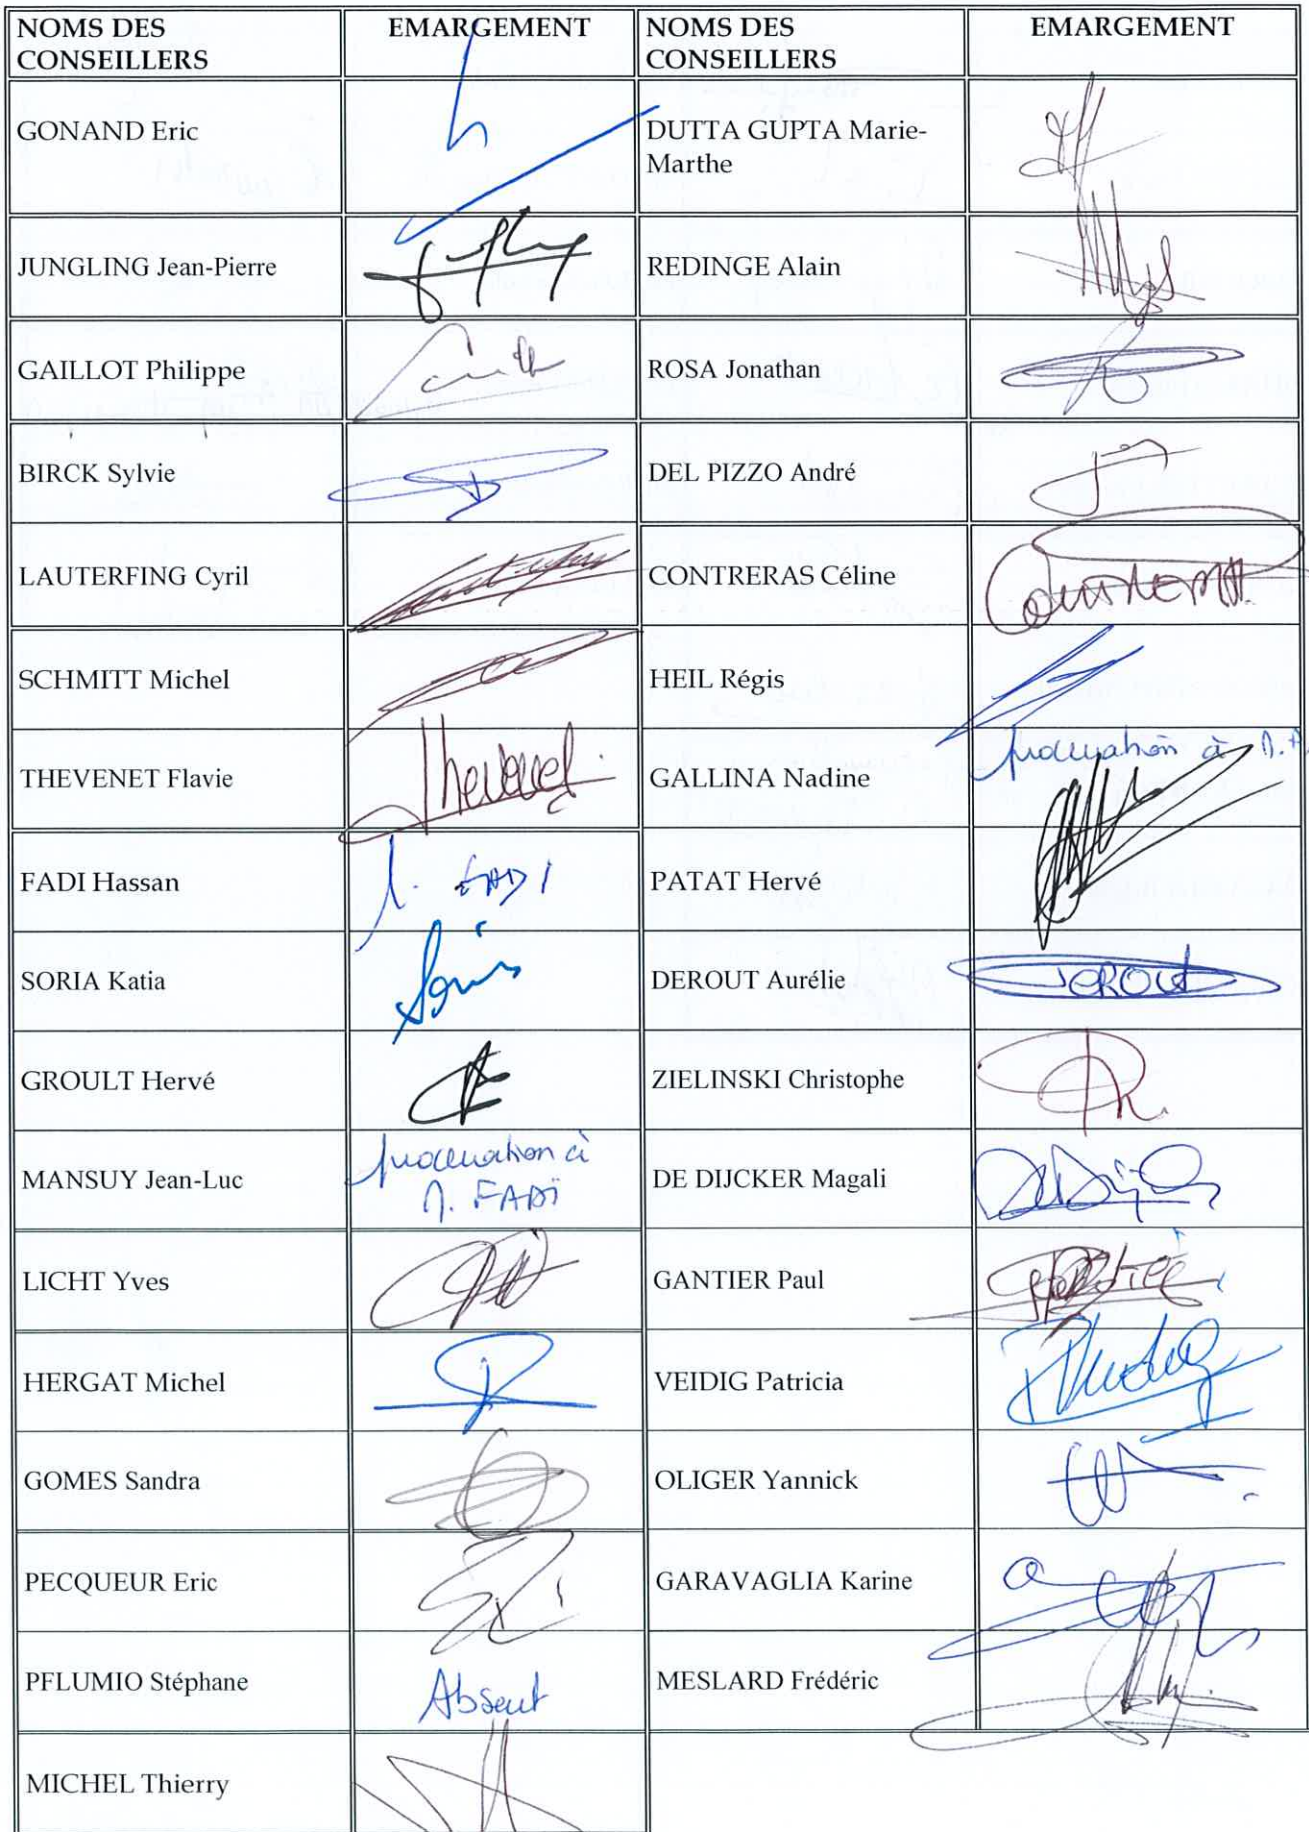 NOMS DES CONSEILLERS EMARGEMENT NOMS DES CONSEILLERS EMARGEMENT
GONAND Eric DUTTA GUPTA Marie-Marthe
JUNGLING Jean-Pierre REDINGE Alain
GAILLOT Philippe ROSA Jonathan
BIRCK Sylvie DEL PIZZO André
LAUTERFING Cyril CONTRERAS Céline
SCHMITT Michel HEIL Régis
THEVENET Flavie Thevenet GALLINA Nadine procuration à
FADI Hassan FADI PATAT Hervé
SORIA Katia DEROUT Aurélie DEROUT
GROULT Hervé ZIELINSKI Christophe
MANSUY Jean-Luc procuration à M. FADI DE DIJCKER Magali
LICHT Yves GANTIER Paul
HERGAT Michel VEIDIG Patricia
GOMES Sandra OLIGER Yannick
PECQUEUR Eric GARAVAGLIA Karine
PFLUMIO Stéphane Absent MESLARD Frédéric
MICHEL Thierry